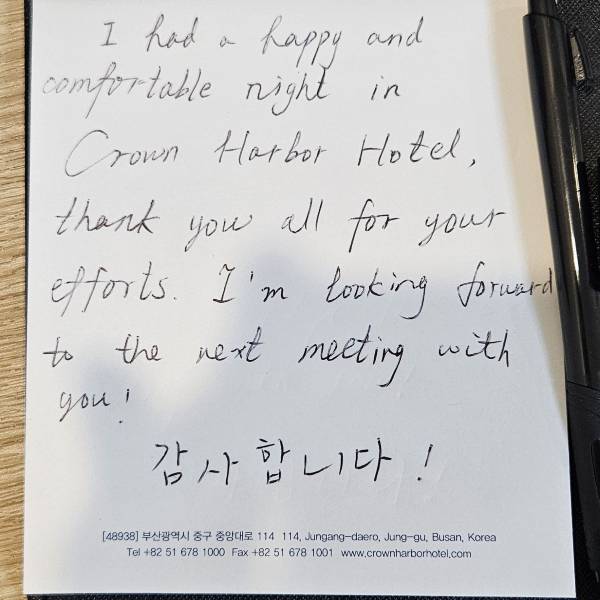 I had a happy and
comfortable night in
Crown Harbor Hotel,
thank you all for your
efforts. I'm looking forward
to the next meeting with
you!
감사합니다!
[48938] 부산광역시 중구 중앙대로 114 114, Jungang-daero, Jung-gu, Busan, Korea
Tel +82 51 678 1000 Fax +82 51 678 1001 www.crownharborhotel.com